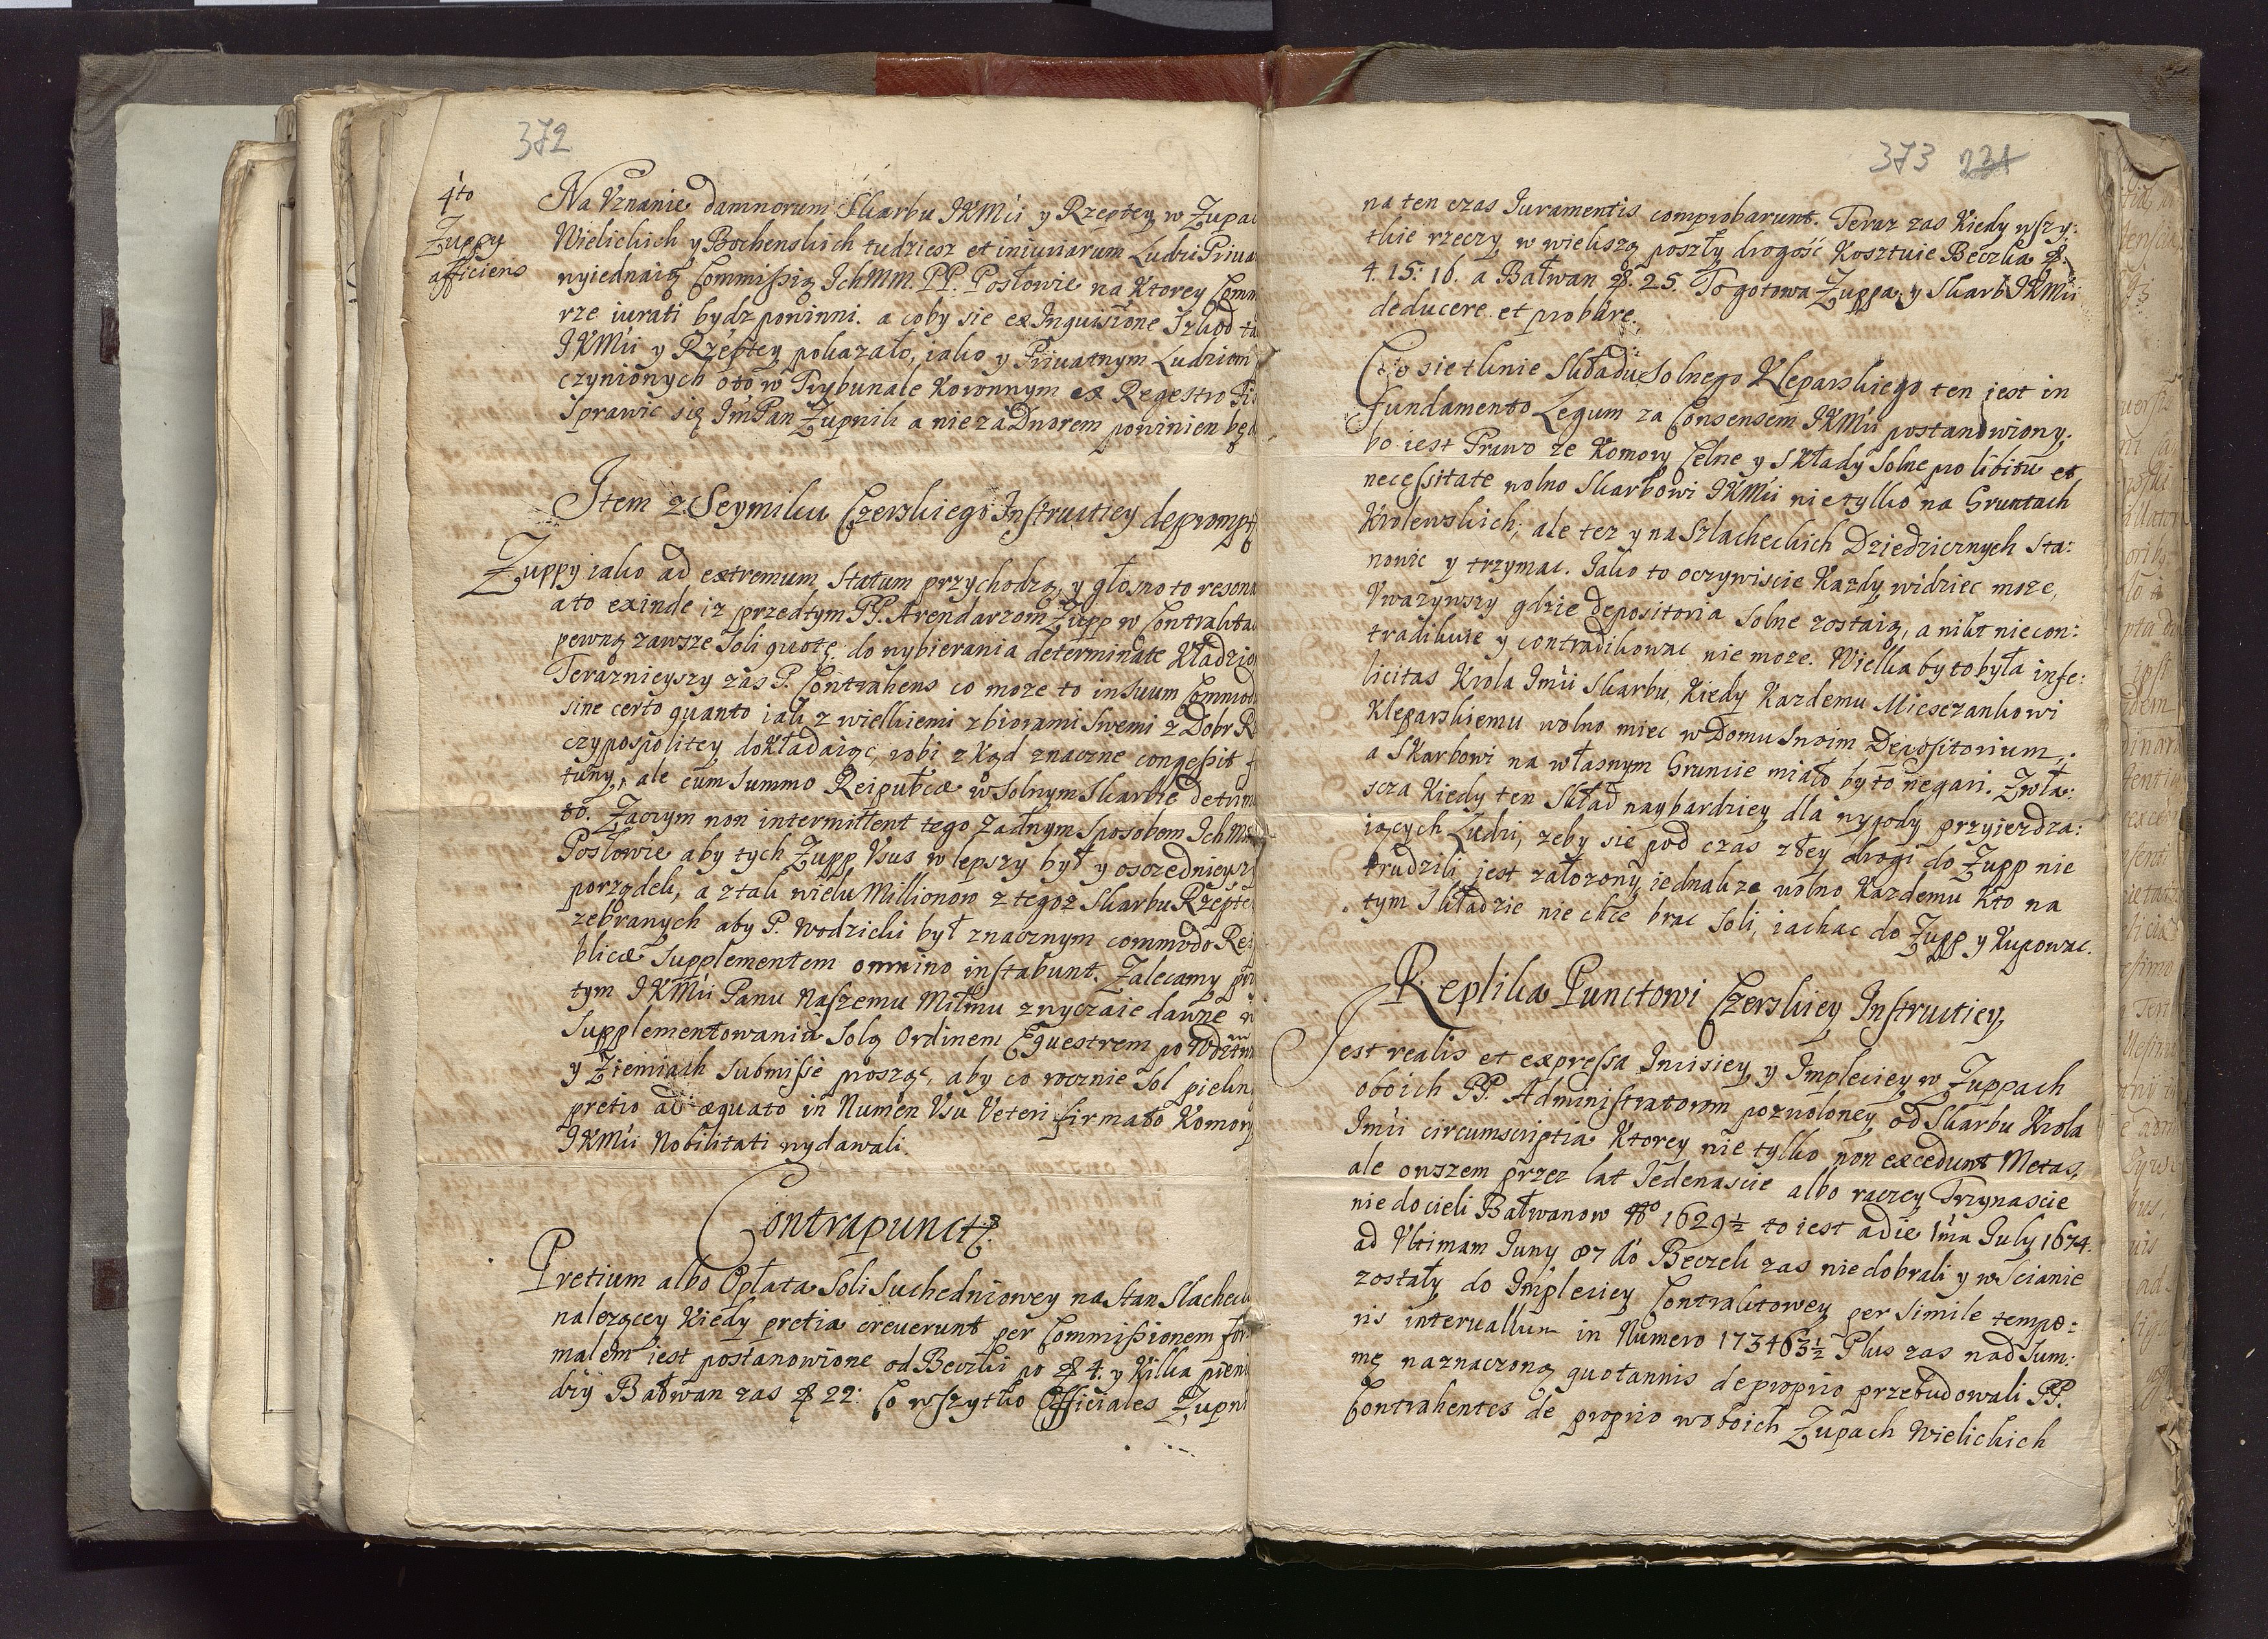 372
4to
Zuppy
afficiens
Na Uznanie damnorum Skarbu IKMći y Rzeptey w Zupac
Wielickich y Bochenskich tudziesz et iniuriarum Ludzi Priua
wyiednaią Commissią IchMM. PP. Posłowie na ktorey Comm
rze iurati bydz powinni. a coby sie ex Inquisitione Szkod
IKMći y Rzeptey pokazało, iako y Priuatnym Ludziom
czynionych oto w Trybunale Koronnym ex Regestro
Sprawic się ImPan Zupnik a nie za Dworem powinien
Item z Seymiku Czerskiego Instructiey deprompt
Zuppy iako ad extremum statum przychodzą, y głosno to resona
a to exinde iz przedtym PP. Arendarzom Zupp w Contrakta
pewną zawsze Soli quotę do wybierania determinate kładzio
Teraznieyszy zas P. Contrahens co moze to in suum Commod
sine certo quanto iak z wielkiemi zbiorami swemi z Dobr R
czypospolitey dokładaiąc, robi z kąd znaczne congessit f
tuny, ale cum summo Reipublcæ w Solnym Skarbie detrim
to. Zaczym non intermittent tego zadnym Sposobem IchMM
Posłowie aby tych Zupp Usus w lepszy był y oszczednieysz
porządek, a z tak wielu Millionow z tegoz Skarbu Rzepte
zebranych aby P. Wodzicki był znacznym commodo Rei
blicæ Supplementem omnino instabunt. Zalecamy
tym IKMći Panu Naszemu Miłmu zwyczaie dawne
Supplementowania Solą Ordinem Equestrem po Wdztw
y Ziemiach submisse prosząc, aby co rocznie Sol piekn
pretio adæquato in Numen Usu Veteri firmato Komory
IKMći Nobilitati wydawali.
Contrapunct
Pretium albo Opłata Soli Suchedniowey na Stan Slacheck
nalezącey kiedy pretia creuerunt per Commissionem for
malem iest postanowione od Beczki po 4. y kilka pieni
dzy Bałwan zas 22: Co wszytko Officiales Zupn
373 231
na ten czas Iuramentis comprobarunt. Teraz zas kiedy wszy:
tkie rzeczy w wiekszą poszły drogość kosztuie Beczka
4. 15: 16. a Bałwan 25. To gotowa Zuppa y Skarb IKMći
deducere et probare.
Co sie tknie Składu Solnego Kleparskiego ten jest in
fundamento Legum za Consensem IKMći postanowiony,
bo iest Prawo ze Komory Celne y Składy Solne po libitu et
necessitate wolno Skarbowi IKMći nie tylko na Gruntach
Krolewskich, ale tez y na Szlacheckich Dziedzicznych sta:
nowic y trzymac. Iako to oczywiscie kazdy widziec moze,
Uwazywszy gdzie depositoria Solne zostaią, a nikt niecon:
tradikuie y contradikowac nie moze. Wielka by to była infe:
licitas Krola Imći Skarbu, kiedy kazdemu Miesczankowi
Kleparskiemu wolno miec w Domu Swoim Depositorium,
a Skarbowi na własnym Gruncie miało by to negari. Zwła:
scza kiedy ten Skład naybardziey dla wygody przyiezdza:
iących Ludzi, zeby sie pod czas złey drogi do Zupp nie
trudzili, jest załozony, iednakze wolno kazdemu kto na
tym Składzie nie chce brac Soli, iachac do Zupp y kupowac.
Replika Punctowi Czerskiey Instructiey
Jest realis et expressa Incisiey y Impleciey w Zuppach
oboich PP. Administratorom pozwoloney od Skarbu Krola
Imći circumscriptia ktorey nie tylko non excedunt Metas,
ale owszem przez lat Jedenascie albo raczey Trzynascie
nie docieli Bałwanow No 1629½ to iest a die 1ma July 1674.
ad Ultimam Juny 87 do Beczek zas nie dobrali y w Scianie
zostały do Impleciey Contraktowey per simile tempo:
ris interuallum in Numero 173463½ Plus zas nad Sum:
mę naznaczoną quotannis de proprio przebudowali PP.
Contrahentes de proprio w oboich Zupach Wielickich